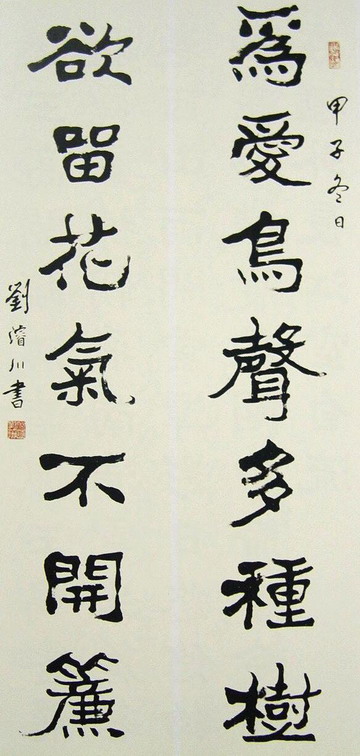 甲子冬日
為愛鳥聲多種樹
欲留花氣不開簾
劉濬川書